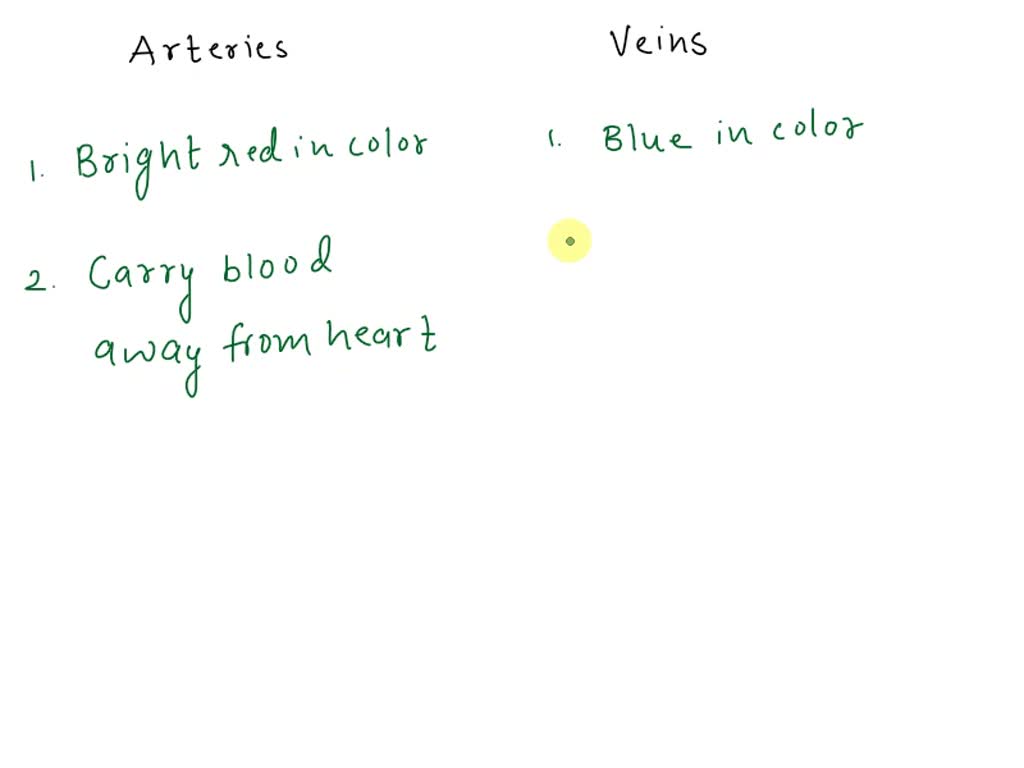 Arteries
Veins
1. Bright red in color
1. Blue in color
2. Carry blood
away from heart